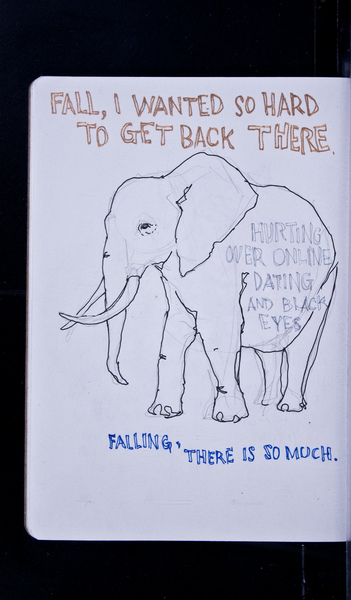 FALL, I WANTED SO HARD
TO GET BACK THERE.
HURTING
OVER ONLINE
DATING
AND BLACK
EYES
FALLING,
THERE IS SO MUCH.